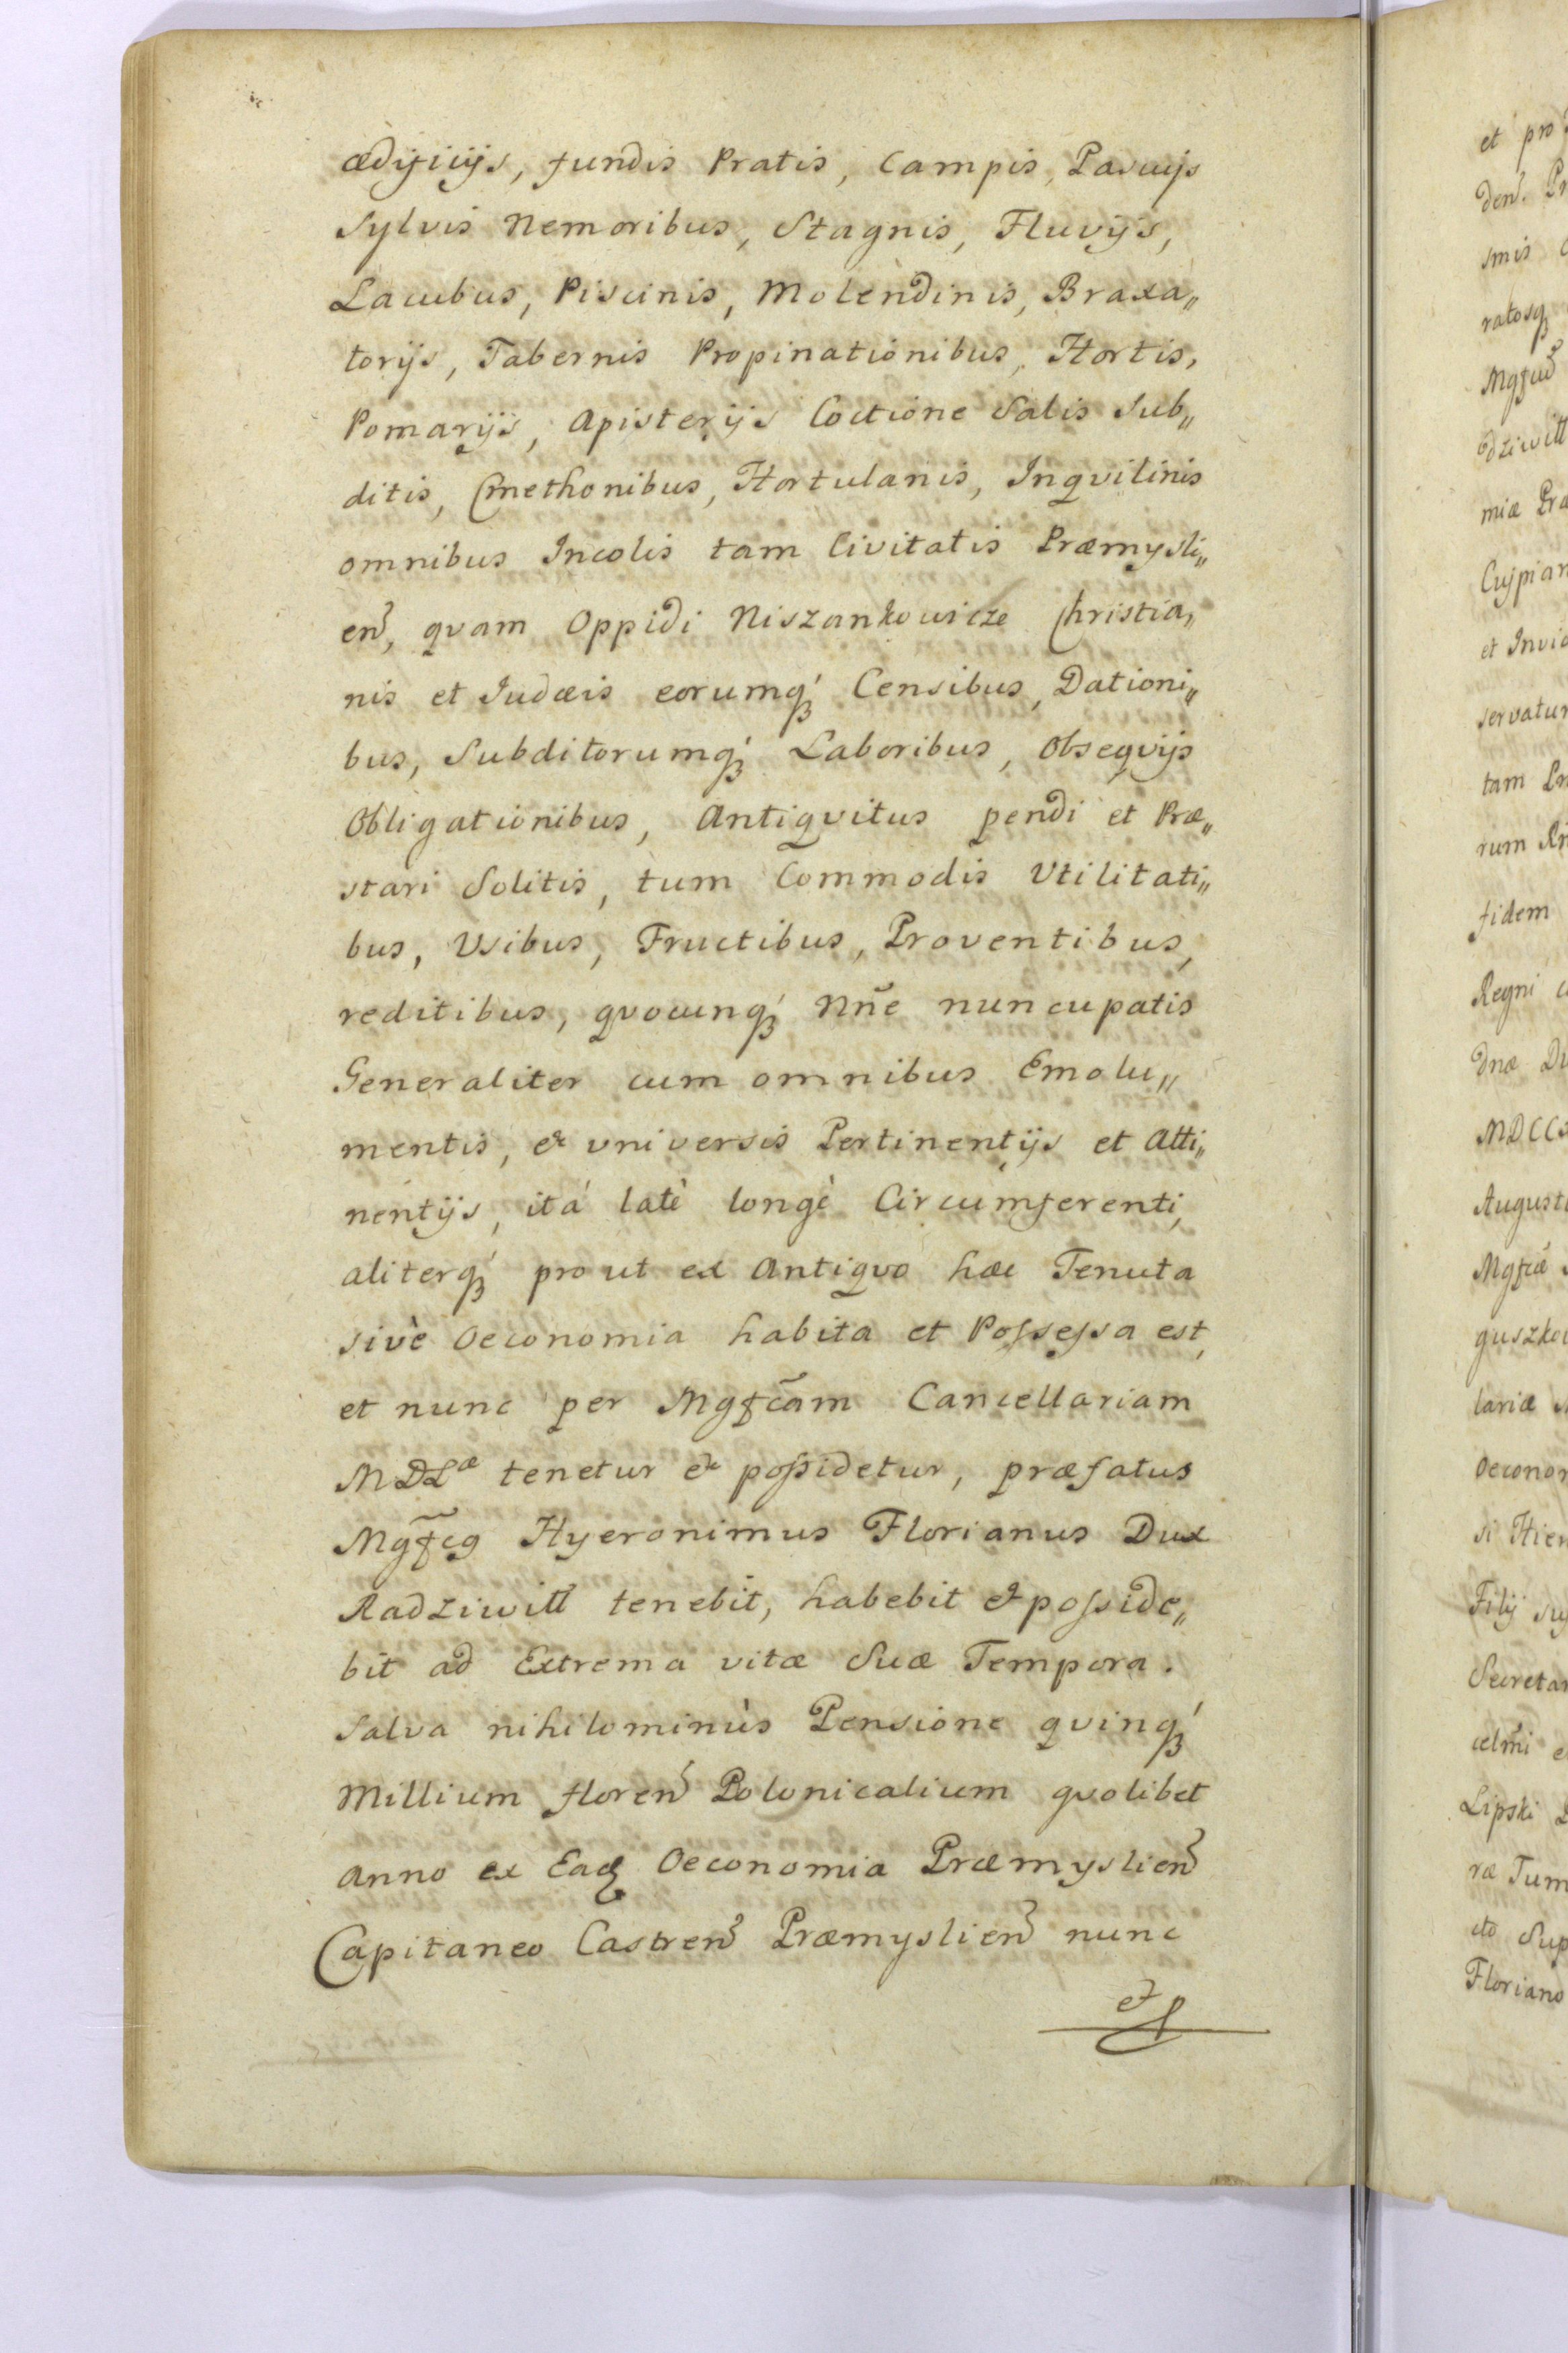 ædificijs, fundis Pratis, Campis, Pascuijs
Sylvis Nemoribus, Stagnis, Fluvijs,
Lacubus, Piscinis, Molendinis, Braxa„
torijs, Tabernis Propinationibus, Hortis,
Pomarijs, Apisterijs Coctione Salis Sub„
ditis, Cmethonibus, Hortulanis, Inqvilinis
omnibus Incolis tam Civitatis Præmysli„
eñ, qvam Oppidi Niszankowicze Christia„
nis et Judæis eorumq́ꝫ Censibus, Dationi„
bus, Subditorumq́ꝫ Laboribus, Obseqvijs
Obligationibus, Antiqvitus pendi et Præ„
stari Solitis, tum Commodis Utilitati„
bus, Usibus, Fructibus, Proventibus,
reditibus, qvocunq́ꝫ Nñe nuncupatis
Generaliter cum omnibus Emolu„
mentis, & universis Pertinentijs et Atti„
nentijs, itá latè longè Circumferenti,
aliterq́ꝫ prout ex Antiqvo hæc Tenuta
sivè Oeconomia habita et Possessa est,
et nunc per Mgfcãm Cancellariam
MDLæ tenetur & possidetur, præfatus
Mgf̃cꝯ Hyeronimus Florianus Dux
Radziwiłł tenebit, habebit et posside„
bit ad Extrema vitæ Suæ Tempora.
Salva nihilominùs Pensione qvinq́ꝫ
Millium floreñ Polonicalium qvolibet
Anno ex Eadꝫ Oeconomia Præmyslieñ
Capitaneo Castreñ Præmyslieñ nunc
et p
et pro
deñ. Pr
smis
ratosqꝫ
dziwiłł
miæ Præ
Cujpian
et Invio
servatur
tam
rum
fidem
Regni
Dnæ
MDCC
August
Mgfcæ
guszko
lariæ
Oeconom
si Hier
Filij
Secretar
celm̃i
Lipski
ræ Tum
cto Sup
Floriano